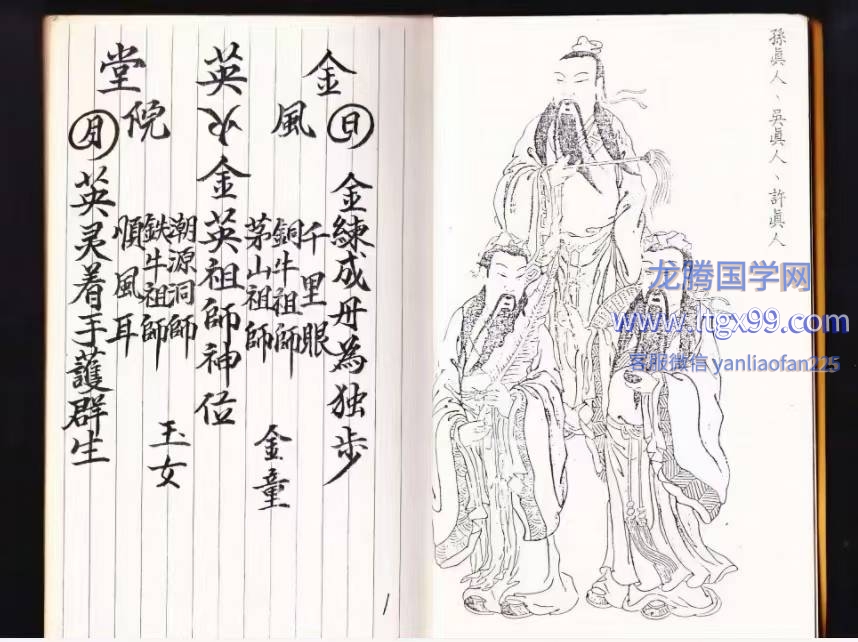 孫眞人、吳眞人、許眞人
龙腾国学网
www.ltgx99.com
客服微信 yanliaofan225
金
風
英火
院
堂
日 金練成丹為独步
千里眼
銅牛祖師
茅山祖師
金童
金英祖師神位
潮源洞師
鉄牛祖師
順風耳
玉女
月 英灵着手護群生
1